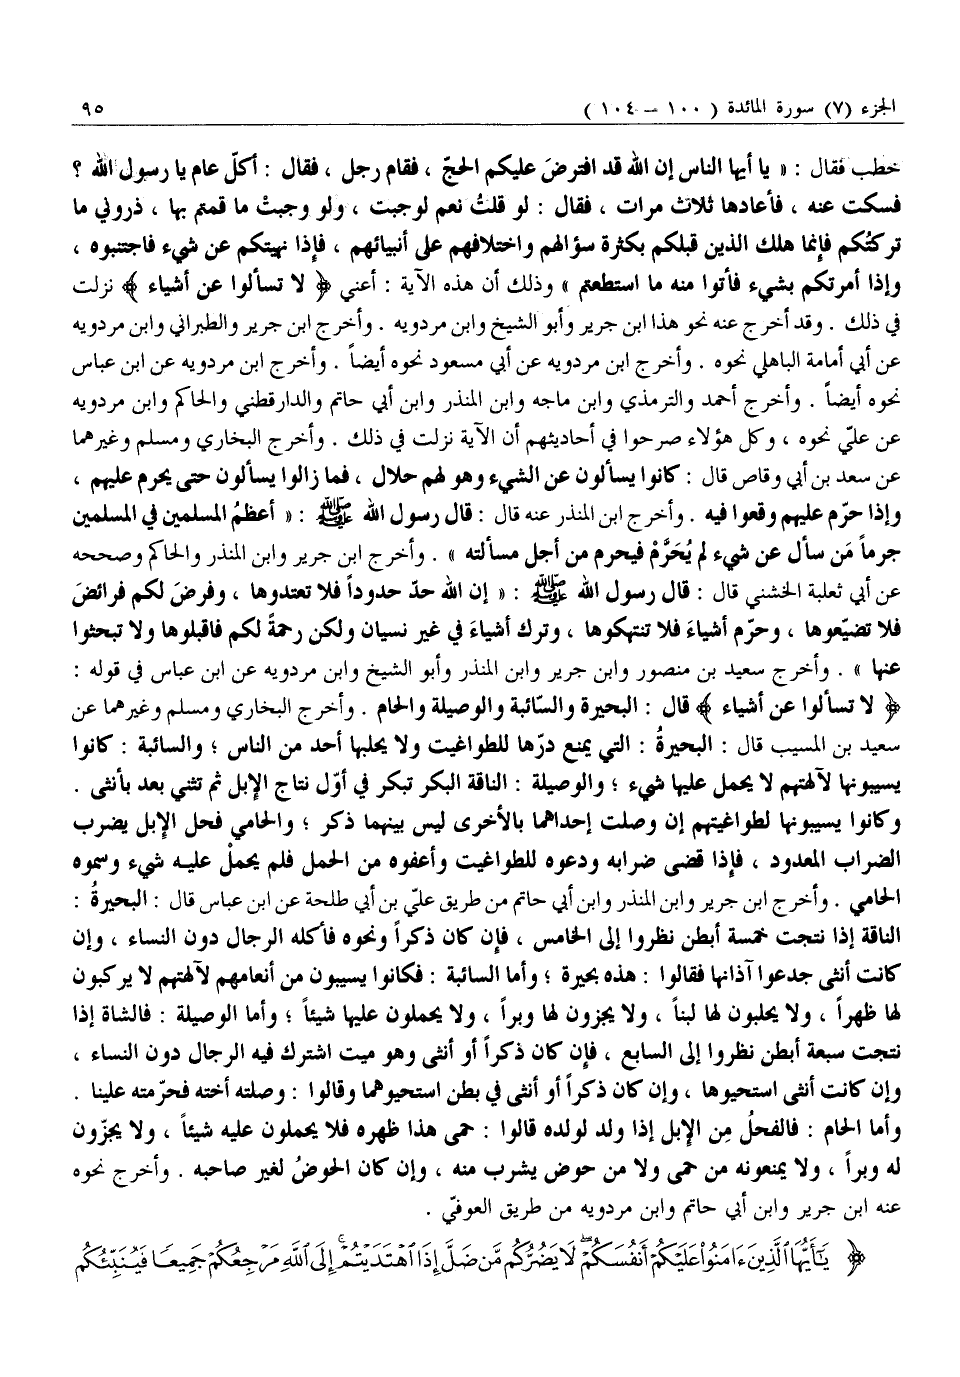 الجزء (٧) سورة المائدة ( ١٠٠ – ١٠٤ ) ٩٥
خطب فقال : « يا أيها الناس إن الله قد افترضَ عليكم الحجّ ، فقام رجل ، فقال : أكلّ عام يا رسول الله ؟
فسكت عنه ، فأعادها ثلاث مرات ، فقال : لو قلتُ نعم لوجبت ، ولو وجبتْ ما قمتم بها ، ذروني ما
تركتُكم فإنما هلك الذين قبلكم بكثرة سؤالهم واختلافهم على أنبيائهم ، فإذا نهيتكم عن شيء فاجتنبوه ،
وإذا أمرتكم بشيء فأتوا منه ما استطعتم » وذلك أن هذه الآية : أعني ﴿ لا تسألوا عن أشياء ﴾ نزلت
في ذلك . وقد أخرج عنه نحو هذا ابن جرير وأبو الشيخ وابن مردويه . وأخرج ابن جرير والطبراني وابن مردويه
عن أبي أمامة الباهلي نحوه . وأخرج ابن مردويه عن أبي مسعود نحوه أيضاً . وأخرج ابن مردويه عن ابن عباس
نحوه أيضاً . وأخرج أحمد والترمذي وابن ماجه وابن المنذر وابن أبي حاتم والدارقطني والحاكم وابن مردويه
عن عليّ نحوه ، وكل هؤلاء صرحوا في أحاديثهم أن الآية نزلت في ذلك . وأخرج البخاري ومسلم وغيرهما
عن سعد بن أبي وقاص قال : كانوا يسألون عن الشيء وهو لهم حلال ، فما زالوا يسألون حتى يحرم عليهم ،
وإذا حرّم عليهم وقعوا فيه . وأخرج ابن المنذر عنه قال : قال رسول الله ﷺ : « أعظمُ المسلمين في المسلمين
جرماً مَن سأل عن شيء لم يُحَرَّمْ فيحرم من أجل مسألته » . وأخرج ابن جرير وابن المنذر والحاكم وصححه
عن أبي ثعلبة الخشني قال : قال رسول الله ﷺ : « إن الله حدّ حدوداً فلا تعتدوها ، وفرضَ لكم فرائضَ
فلا تضيّعوها ، وحرّم أشياءَ فلا تنتهكوها ، وترك أشياءَ في غير نسيان ولكن رحمةً لكم فاقبلوها ولا تبحثوا
عنها » . وأخرج سعيد بن منصور وابن جرير وابن المنذر وأبو الشيخ وابن مردويه عن ابن عباس في قوله :
﴿ لا تسألوا عن أشياء ﴾ قال : البحيرة والسّائبة والوصيلة والحام . وأخرج البخاري ومسلم وغيرهما عن
سعيد بن المسيب قال : البحيرةُ : التي يمنع درّها للطواغيت ولا يحلبها أحد من الناس ؛ والسائبة : كانوا
يسيبونها لآلهتهم لا يحمل عليها شيء ؛ والوصيلة : الناقة البكر تبكر في أوّل نتاج الإبل ثم تثني بعد بأنثى .
وكانوا يسيبونها لطواغيتهم إن وصلت إحداهما بالأخرى ليس بينهما ذكر ؛ والحامي فحل الإبل يضرب
الضراب المعدود ، فإذا قضى ضرابه ودعوه للطواغيت وأعفوه من الحمل فلم يحملْ عليه شيء وسموه
الحامي . وأخرج ابن جرير وابن المنذر وابن أبي حاتم من طريق عليّ بن أبي طلحة عن ابن عباس قال : البحيرةُ :
الناقة إذا نتجت خمسة أبطن نظروا إلى الخامس ، فإن كان ذكراً ونحوه فأكله الرجال دون النساء ، وإن
كانت أنثى جدعوا آذانها فقالوا : هذه بحيرة ؛ وأما السائبة : فكانوا يسيبون من أنعامهم لآلهتهم لا يركبون
لها ظهراً ، ولا يحلبون لها لبناً ، ولا يجزون لها وبراً ، ولا يحملون عليها شيئاً ؛ وأما الوصيلة : فالشاة إذا
نتجت سبعة أبطن نظروا إلى السابع ، فإن كان ذكراً أو أنثى وهو ميت اشترك فيه الرجال دون النساء ،
وإن كانت أنثى استحيوها ، وإن كان ذكراً أو أنثى في بطن استحيوهما وقالوا : وصلته أخته فحرّمته علينا .
وأما الحام : فالفحلُ مِن الإبل إذا ولد لولده قالوا : حمى هذا ظهره فلا يحملون عليه شيئاً ، ولا يجزّون
له وبراً ، ولا يمنعونه من حمى ولا من حوض يشرب منه ، وإن كان الحوضُ لغير صاحبه . وأخرج نحوه
عنه ابن جرير وابن أبي حاتم وابن مردويه من طريق العوفيّ .
﴿ يَٰٓأَيُّهَا ٱلَّذِينَ ءَامَنُوا۟ عَلَيْكُمْ أَنفُسَكُمْ ۖ لَا يَضُرُّكُم مَّن ضَلَّ إِذَا ٱهْتَدَيْتُمْ ۚ إِلَى ٱللَّهِ مَرْجِعُكُمْ جَمِيعًا فَيُنَبِّئُكُم